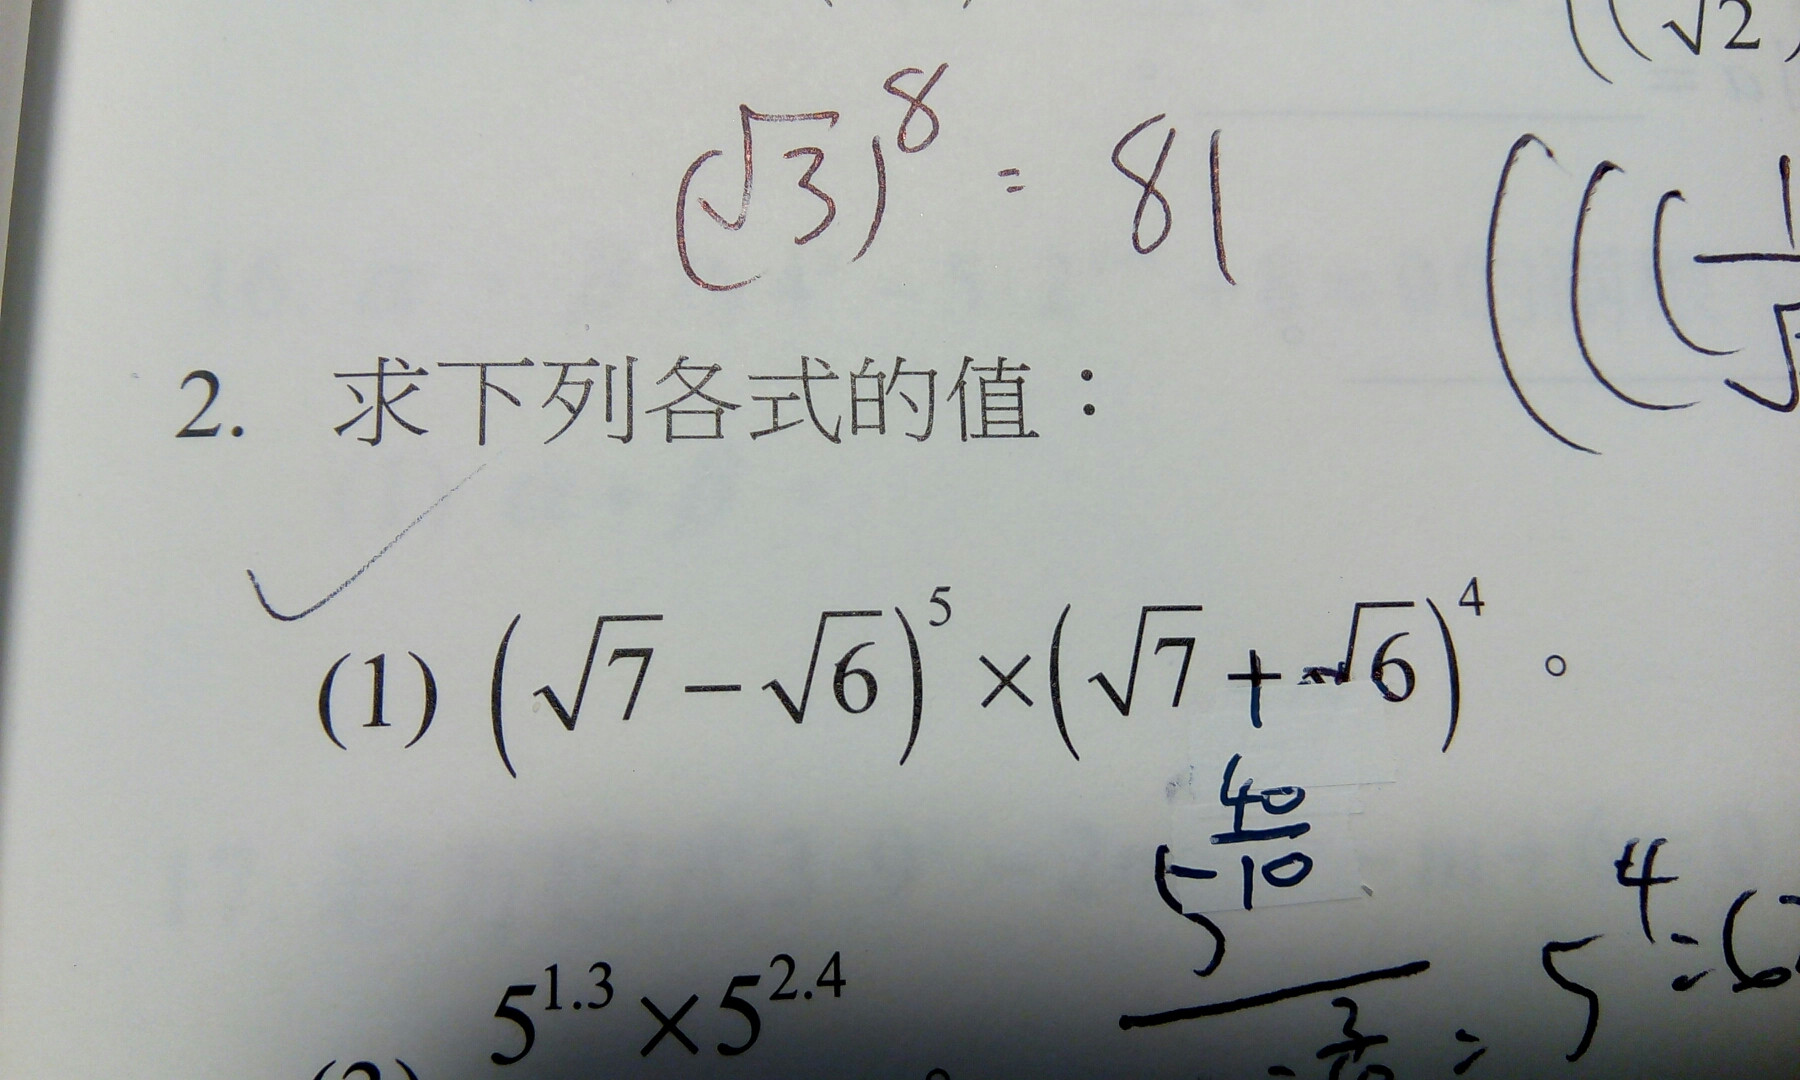 (√2)
(√3)⁸ = 81
(((1/√
2. 求下列各式的值：
(1) (√7 − √6)⁵ × (√7 + √6)⁴ 。
5^(40/10)
5⁴ = 6
5^1.3 × 5^2.4